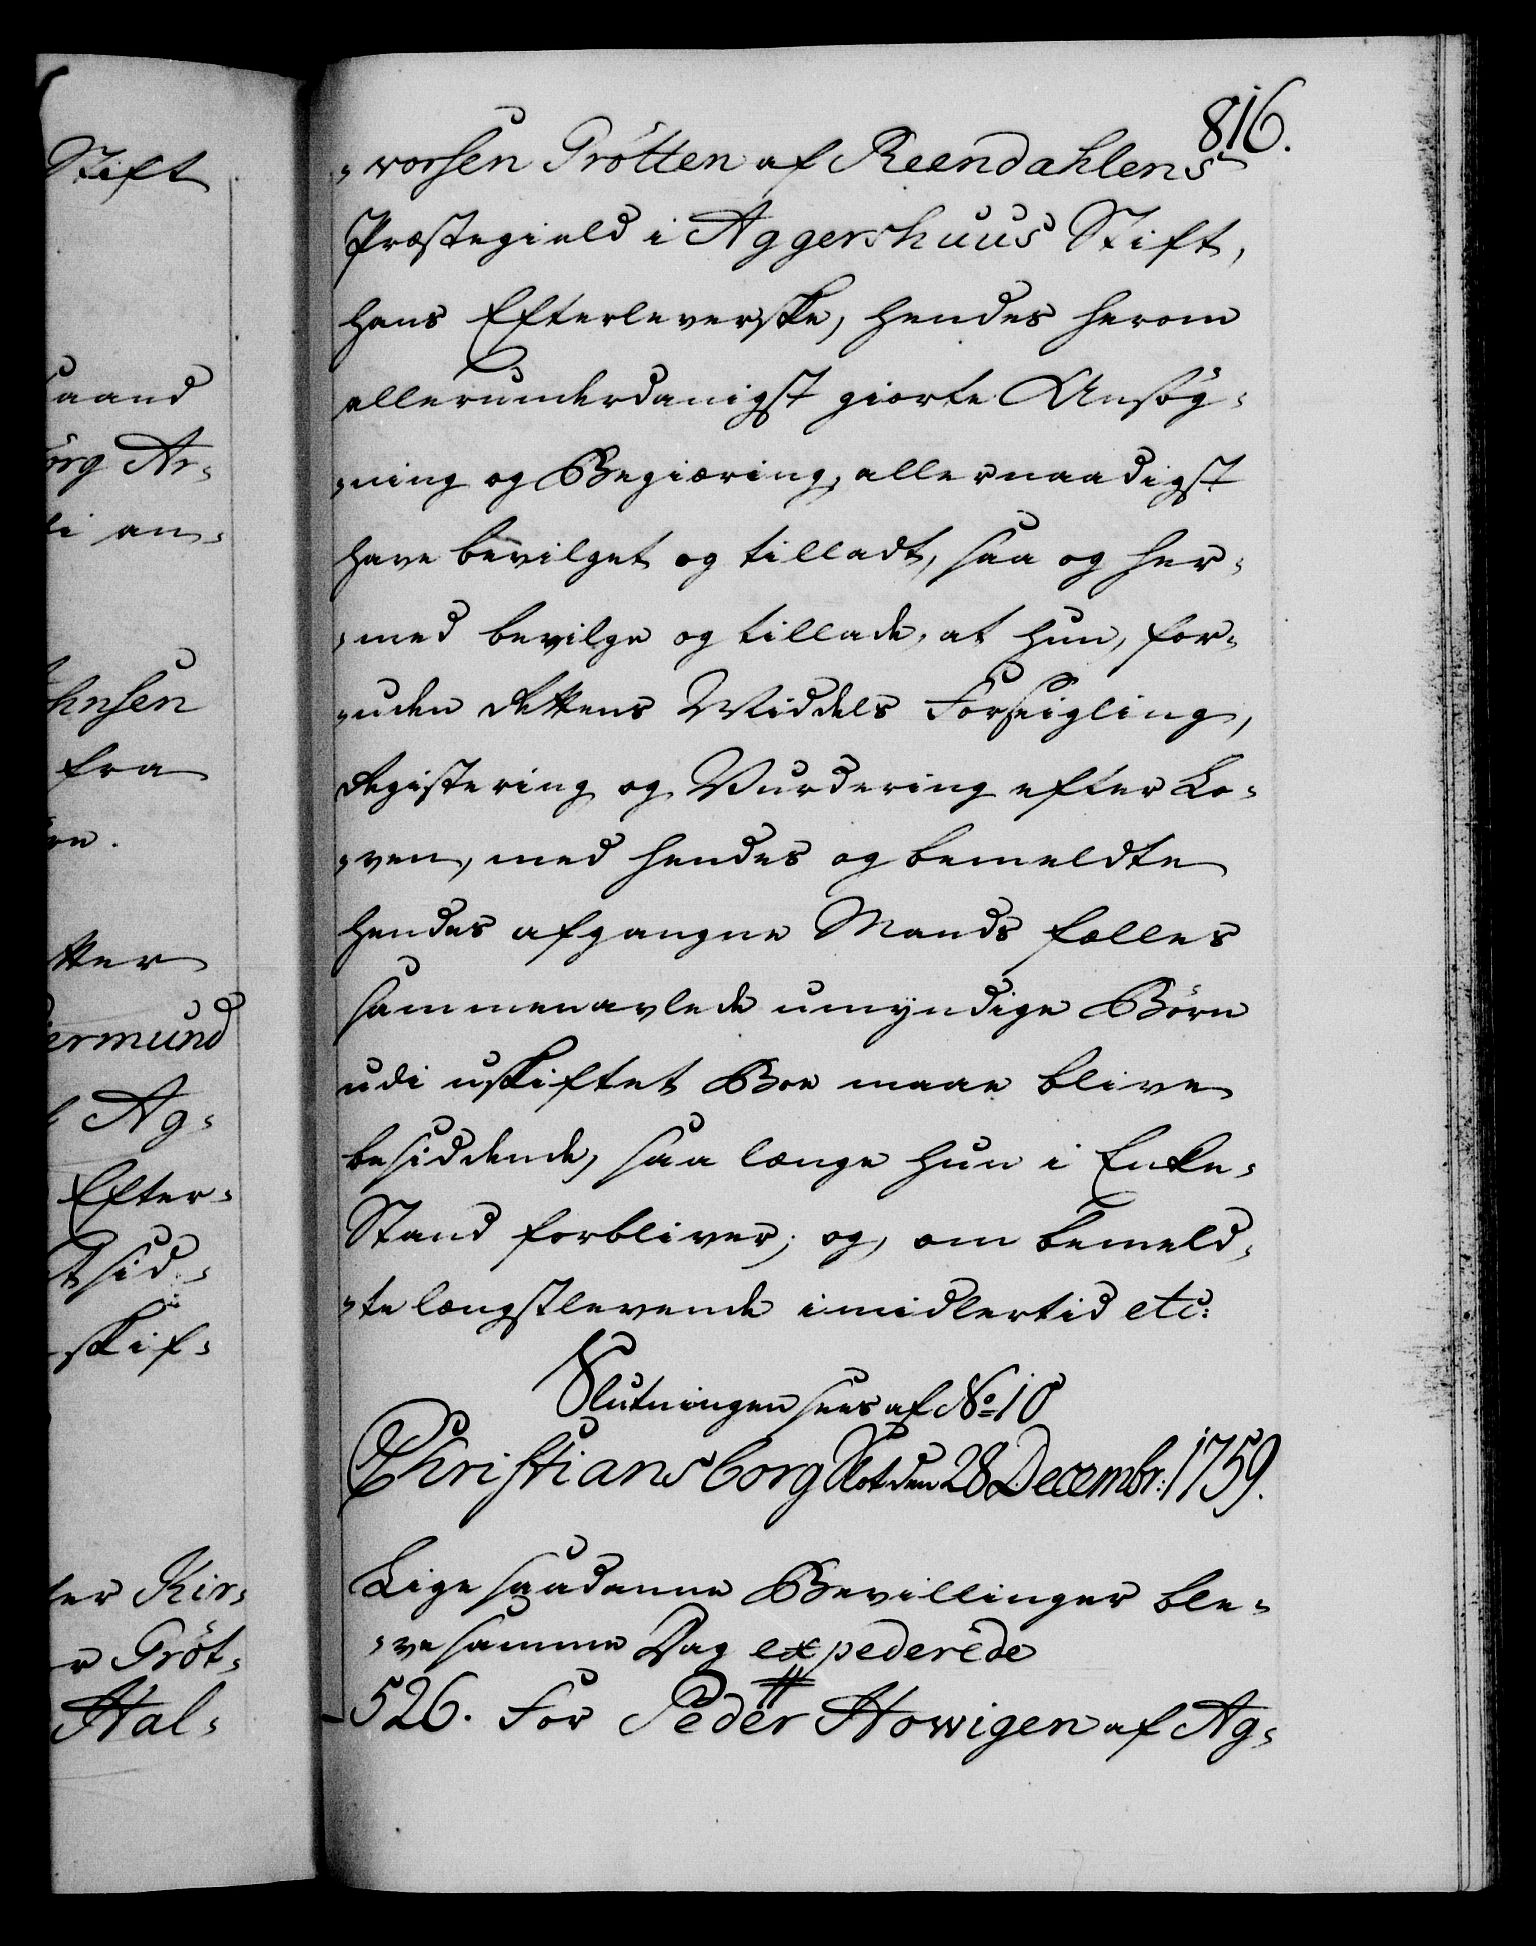 Stift
aand
org Ar-
i an-
hnsen
fra
tter
ermund
Ag-
Efter-
sid-
skif-
er Kir-
Gröt-
Hal-
816.
-vorsen Grötten af Reendahlens
Præstegield i Aggershuus Stift,
hans Efterleverske, hendes herom
allerunderdanigst giorte Ansøg-
-ning og Begiæring, allernaadigst
have bevilget og tilladt, saa og her-
-med bevilge og tillade, at hun, for-
-uden Rettens Middels Forseigling,
Registering og Vurdering efter Lo-
-ven, med hendes og bemeldte
hendes afgangne Mands fælles
sammenavlede umyndige Børn
udi uskiftet Boe maae blive
besiddende, saa længe hun i Enke-
Stand forbliver; og, om bemeld-
-te længstlevende imidlertid etc:
Slutningen sees af No 10
Christiansborg Slot den 28 Decembr: 1759.
Lige saadanne Bevillinger ble-
-ve samme Dag expederede
526. For Peder Howigen af Ag-